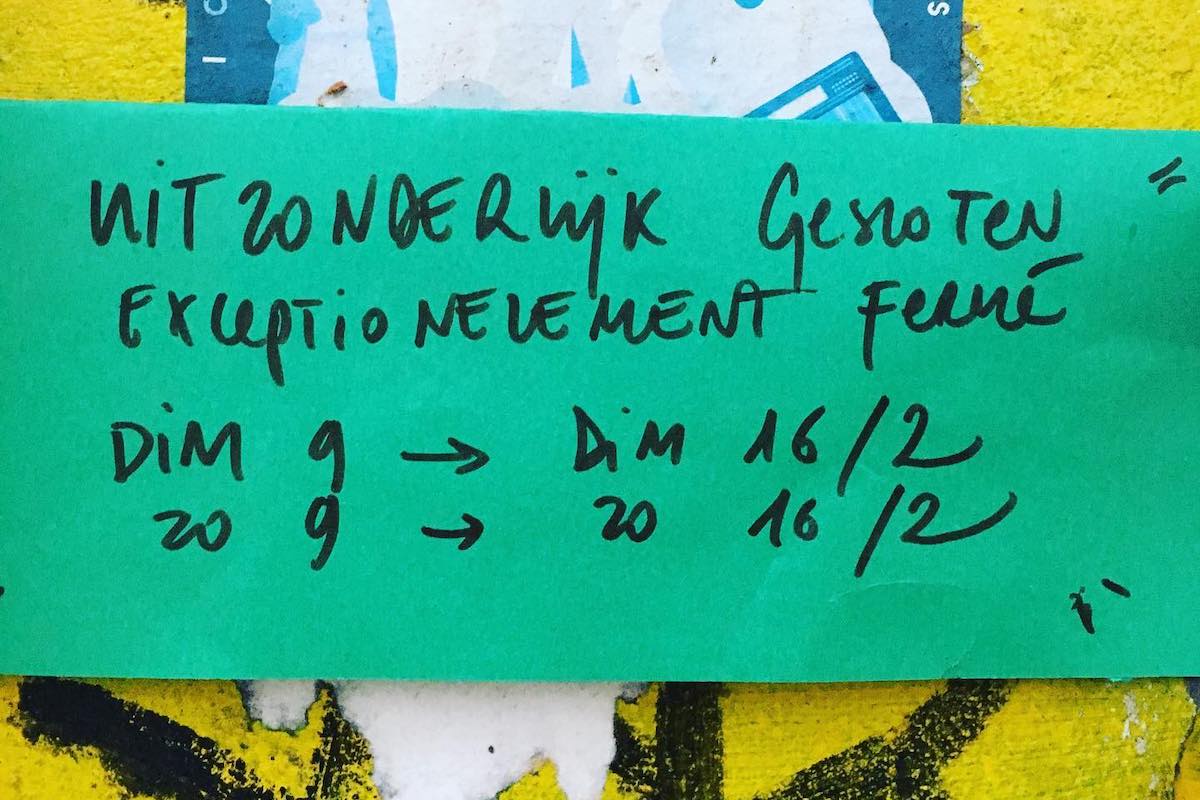 UITZONDERLIJK GESLOTEN
EXCEPTIONELEMENT FERMÉ
DIM 9 → DIM 16/2
ZO 9 → ZO 16/2